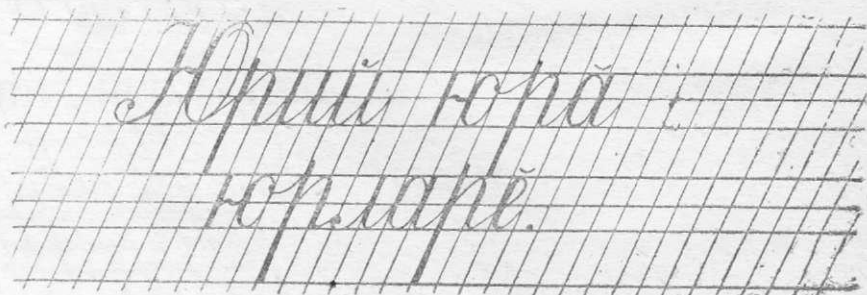 Юрий юрӑ
юрларӗ.